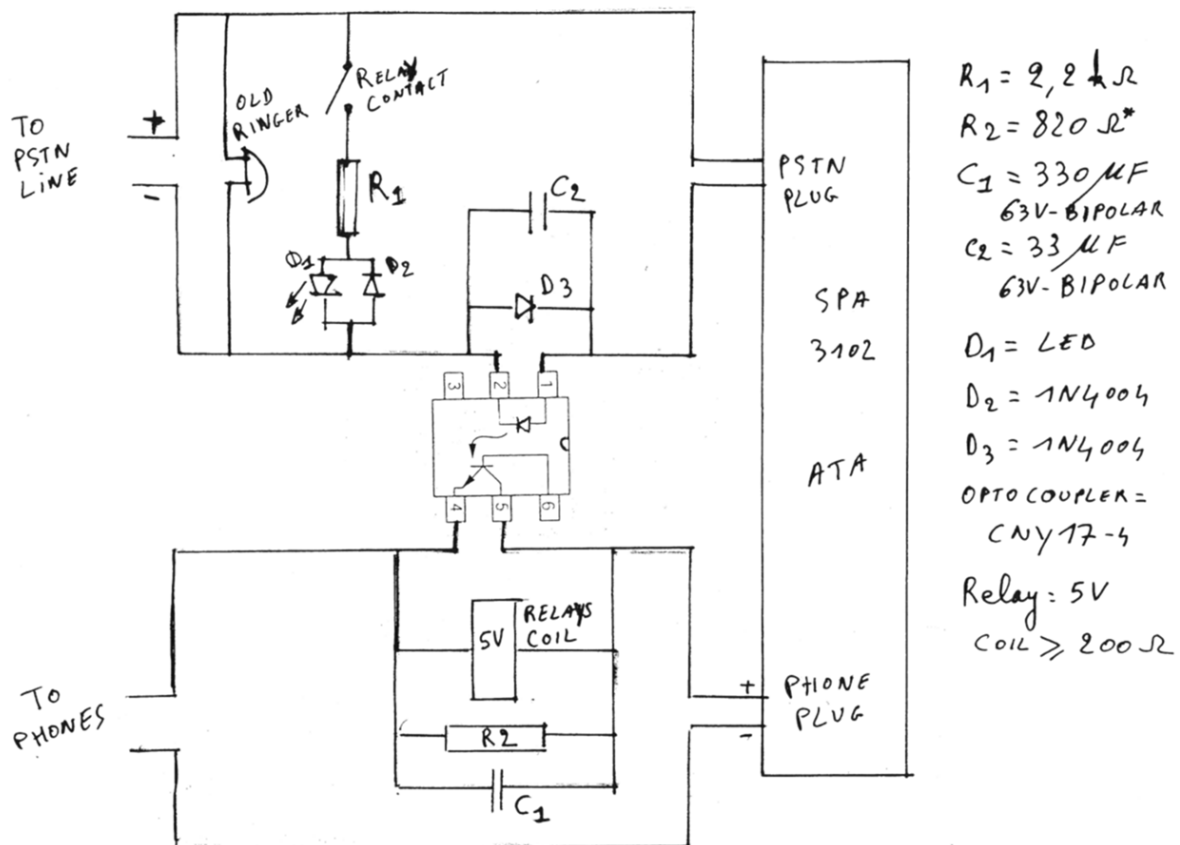 TO
PSTN
LINE
+
-
OLD
RINGER
RELAY
CONTACT
R1
D1
D2
C2
D3
3
2
1
4
5
6
5V
RELAYS
COIL
R2
C1
TO
PHONES
PSTN
PLUG
SPA
3102
ATA
+
PHONE
PLUG
-
R1 = 2,2 k Ω
R2 = 820 Ω*
C1 = 330 µF
63V-BIPOLAR
C2 = 33 µF
63V-BIPOLAR
D1 = LED
D2 = 1N4004
D3 = 1N4004
OPTOCOUPLER =
CNY17-4
Relay: 5V
COIL ⩾ 200 Ω